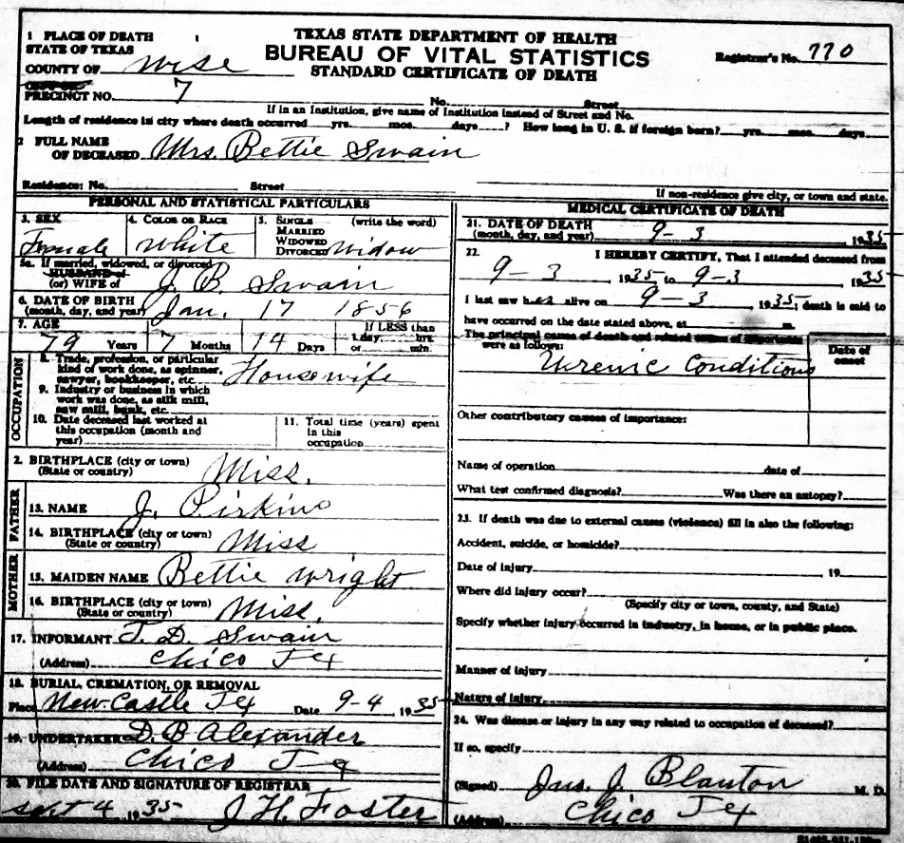 TEXAS STATE DEPARTMENT OF HEALTH
BUREAU OF VITAL STATISTICS
STANDARD CERTIFICATE OF DEATH
Registrar's No. 770
1 PLACE OF DEATH
STATE OF TEXAS
COUNTY OF Wise
PRECINCT NO. 7 No. Street
If in an Institution, give name of Institution instead of Street and No.
Length of residence in city where death occurred yrs. mos. days ? How long in U. S. if foreign born? yrs. mos. days
2 FULL NAME
OF DECEASED Mrs. Bettie Swain
Residence: No. Street
If non-residence give city, or town and state.
PERSONAL AND STATISTICAL PARTICULARS
3. SEX Female
4. COLOR OR RACE White
5. SINGLE (write the word)
MARRIED
WIDOWED
DIVORCED Widow
5a. If married, widowed, or divorced
HUSBAND of
(or) WIFE of J. B. Swain
6. DATE OF BIRTH
(month, day, and year) Jan. 17 1856
7. AGE
79 Years 7 Months 14 Days
If LESS than
1 day, hrs.
or min.
OCCUPATION
8. Trade, profession, or particular
kind of work done, as spinner,
sawyer, bookkeeper, etc. Housewife
9. Industry or business in which
work was done, as silk mill,
saw mill, bank, etc.
10. Date deceased last worked at
this occupation (month and
year)
11. Total time (years) spent
in this
occupation
2. BIRTHPLACE (city or town)
(State or country) Miss.
FATHER
13. NAME J. Pirkins
14. BIRTHPLACE (city or town)
(State or country) Miss
MOTHER
15. MAIDEN NAME Bettie Wright
16. BIRTHPLACE (city or town)
(State or country) Miss.
17. INFORMANT T. D. Swain
(Address) Chico Tex
18. BURIAL, CREMATION, OR REMOVAL
Place New Castle Tex Date 9-4 1935
19. UNDERTAKER D. B. Alexander
(Address) Chico Tex
20. FILE DATE AND SIGNATURE OF REGISTRAR
Sept 4 1935 J H. Foster
MEDICAL CERTIFICATE OF DEATH
21. DATE OF DEATH
(month, day, and year) 9-3 1935
22. I HEREBY CERTIFY, That I attended deceased from
9-3, 1935 to 9-3, 1935
I last saw her alive on 9-3 1935, death is said to
have occurred on the date stated above, at m.
The principal cause of death and related causes of importance
were as follows:
Urenic Conditions
Date of
onset
Other contributory causes of importance:
Name of operation date of
What test confirmed diagnosis? Was there an autopsy?
23. If death was due to external causes (violence) fill in also the following:
Accident, suicide, or homicide?
Date of injury 19
Where did injury occur?
(Specify city or town, county, and State)
Specify whether injury occurred in industry, in home, or in public place.
Manner of injury
Nature of injury
24. Was disease or injury in any way related to occupation of deceased?
If so, specify
(Signed) Jno. J. Blanton M. D.
(Address) Chico Tex